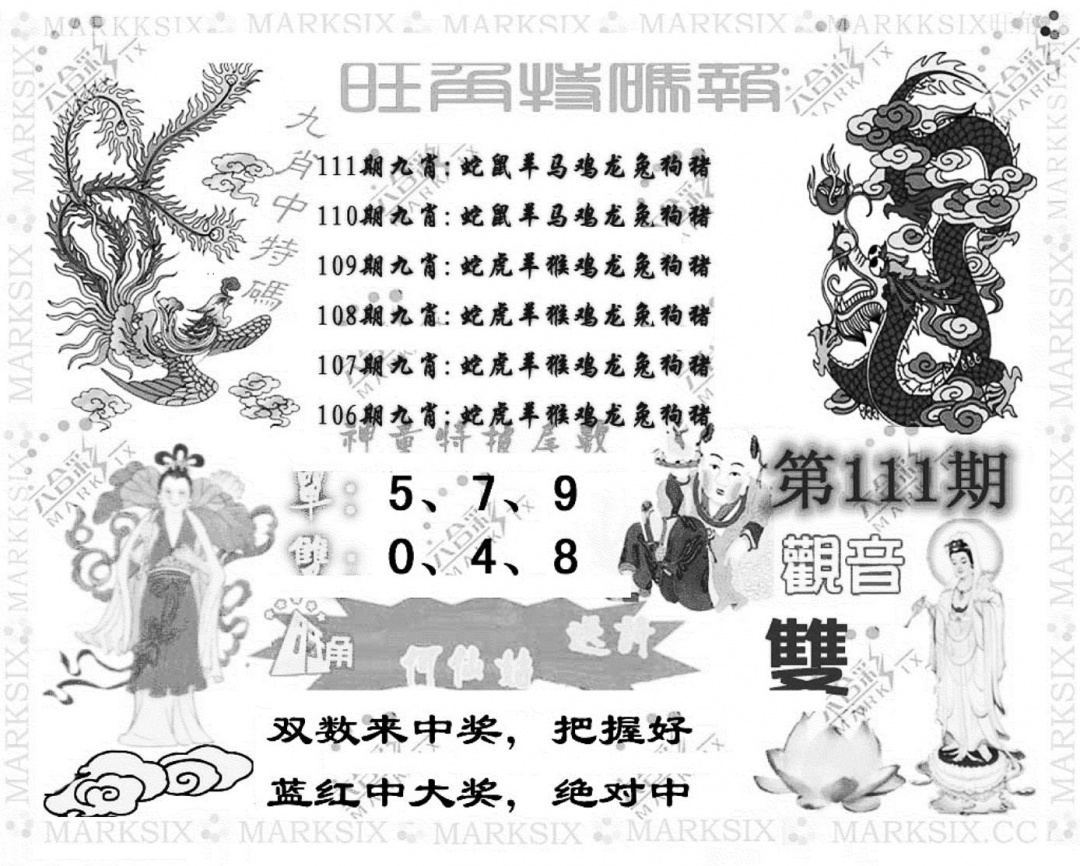 旺角特碼報
九肖中特碼
111期九肖:蛇鼠羊马鸡龙兔狗猪
110期九肖:蛇鼠羊马鸡龙兔狗猪
109期九肖:蛇虎羊猴鸡龙兔狗猪
108期九肖:蛇虎羊猴鸡龙兔狗猪
107期九肖:蛇虎羊猴鸡龙兔狗猪
106期九肖:蛇虎羊猴鸡龙兔狗猪
神童特报尾数
單:5、7、9
雙:0、4、8
第111期
觀音
雙
何仙姑
双数来中奖，把握好
蓝红中大奖，绝对中
MARKSIX MARKSIX MARKSIX MARKSIX MARKKSIX
MARKSIX MARKSIX MARKSIX MARKSIX MARKSIX.CC